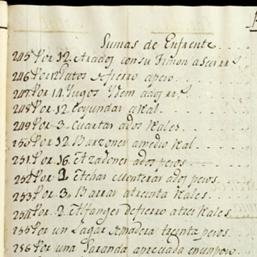 Sumas de Enfrente
245 Por 12. Arados con su Timon a 5 rr.s
246 Por Patos Afierro apero
247 Por 14. Yugos Ydem a dos rr.s
248 Por 12 Coyundas a Real
249 Por 3. Cuartas a dos Reales
250 Por 12 Barzones a medio Real
251 Por 16. Azadones a dos pesos
252 Por 1. a dos pesos
253 Por 3. Barras a treinta Reales
254 Por 2. Alfanges de fierro a tres Reales
255 Por un Lagar Madera treinta pesos
256 Por una Saranda apreciada en un peso